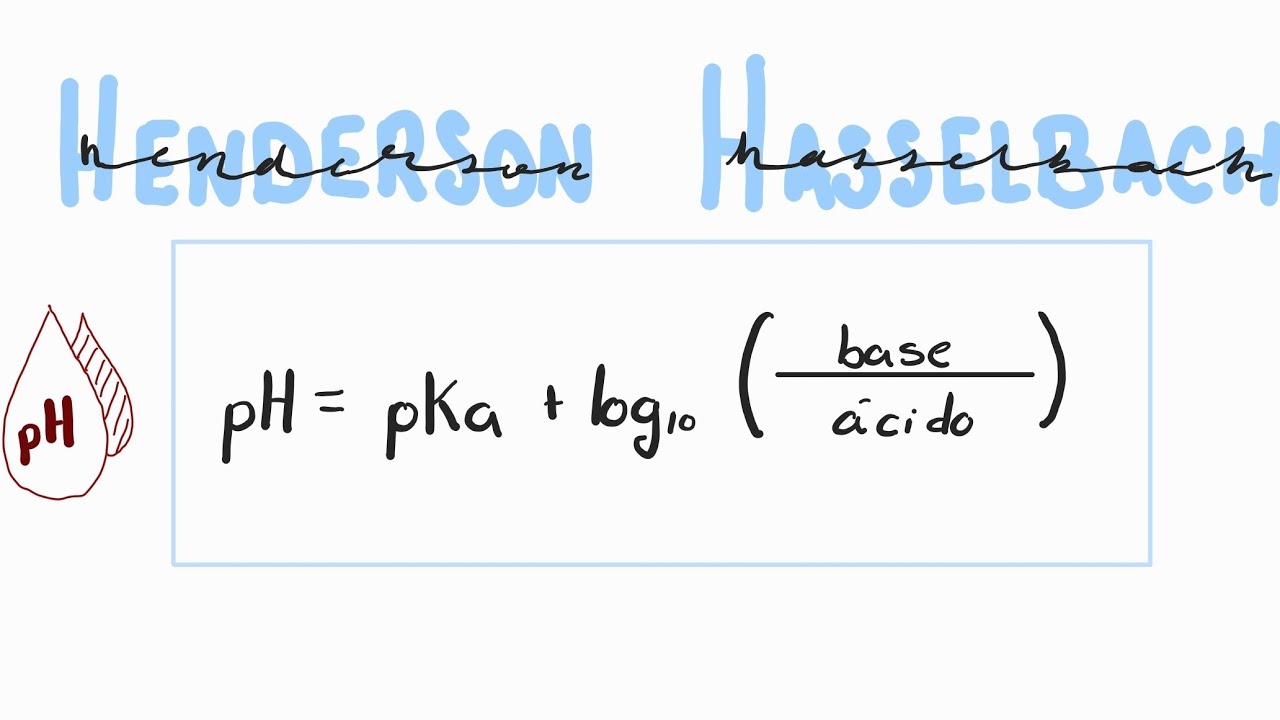 HENDERSON HASSELBACH
henderson hasselbach
pH
pH = pKa + log₁₀ (base/ácido)